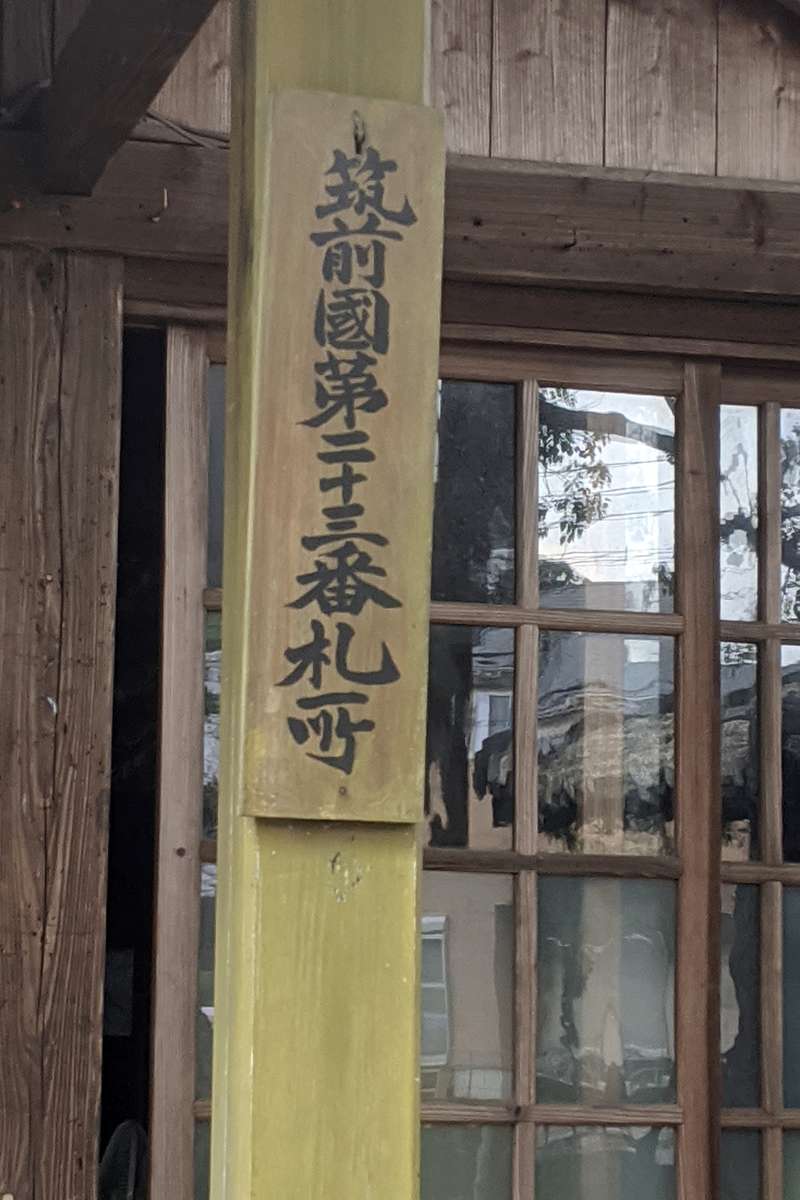 筑前國第二十三番札所